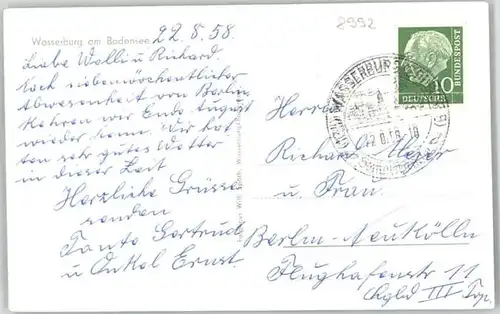 Wasserburg am Bodensee
22.8.58.
8992
Liebe Walli u Richard.
Nach siebenwöchentlicher
Abwesenheit von Berlin
kehren wir Ende August
wieder heim. Wir hat
ten sehr gutes Wetter
in dieser Zeit
Herzliche Grüsse
senden
Tante Gertrud
u Onkel Ernst.
10
DEUTSCHE
BUNDESPOST
WASSERBURG
Herrn
Richard Meyer
u. Frau.
Berlin-Neukölln
Flughafenstr 11
III Trp.